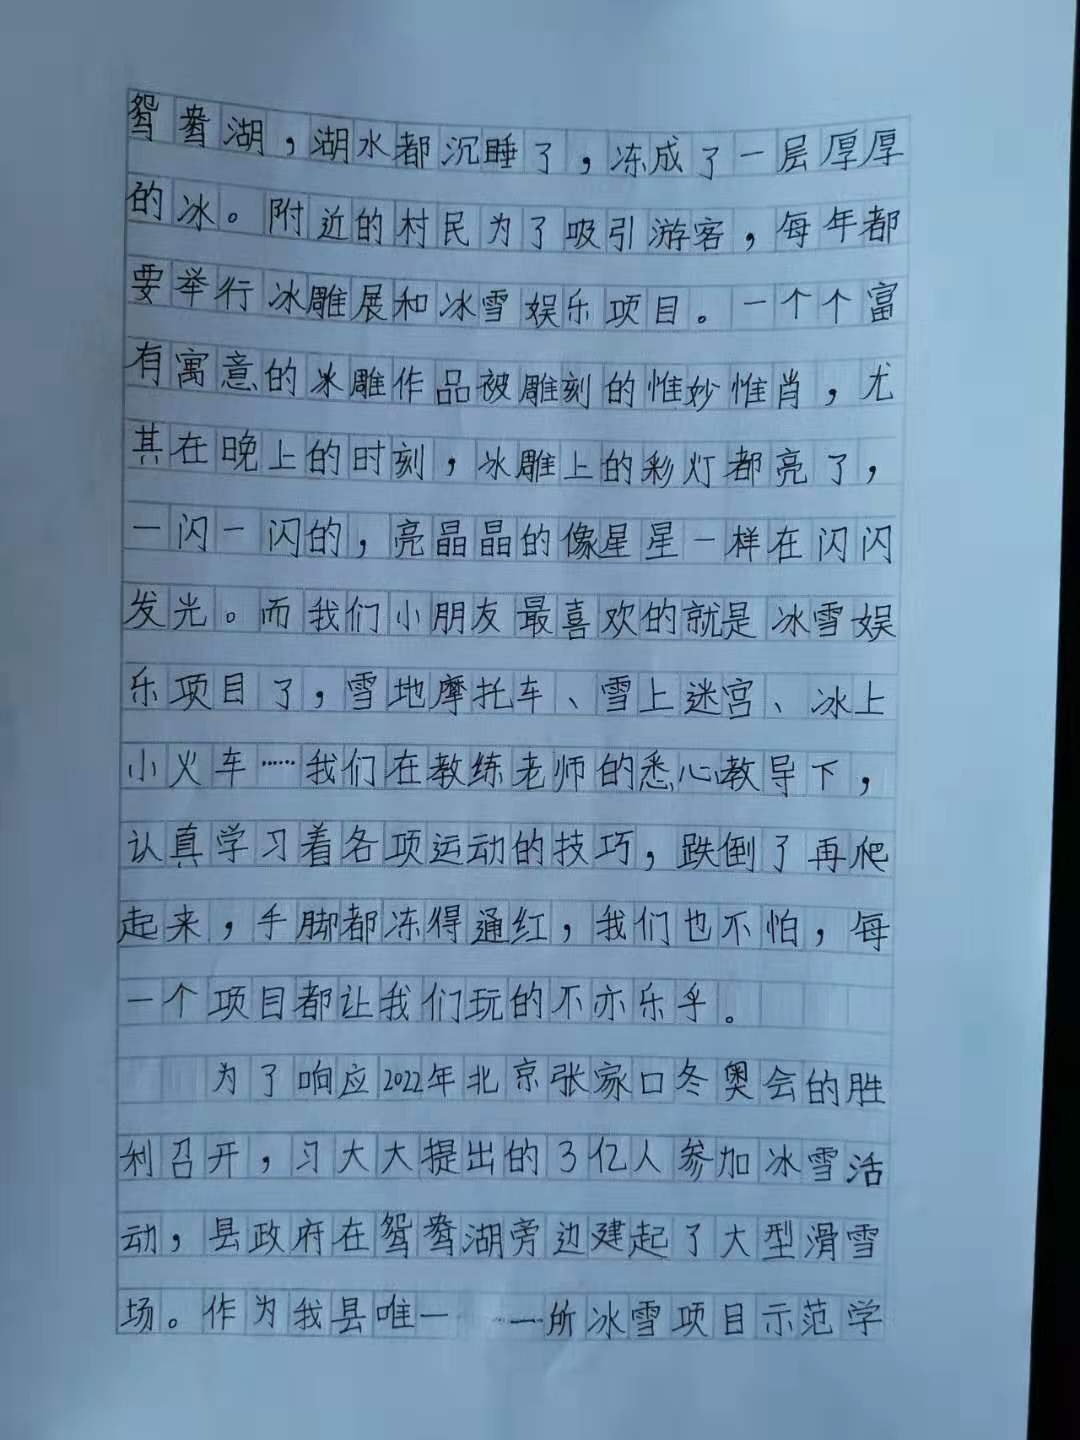 鸳鸯湖，湖水都沉睡了，冻成了一层厚厚
的冰。附近的村民为了吸引游客，每年都
要举行冰雕展和冰雪娱乐项目。一个个富
有寓意的冰雕作品被雕刻的惟妙惟肖，尤
其在晚上的时刻，冰雕上的彩灯都亮了，
一闪一闪的，亮晶晶的像星星一样在闪闪
发光。而我们小朋友最喜欢的就是冰雪娱
乐项目了，雪地摩托车、雪上迷宫、冰上
小火车……我们在教练老师的悉心教导下，
认真学习着各项运动的技巧，跌倒了再爬
起来，手脚都冻得通红，我们也不怕，每
一个项目都让我们玩的不亦乐乎。
为了响应2022年北京张家口冬奥会的胜
利召开，习大大提出的3亿人参加冰雪活
动，县政府在鸳鸯湖旁边建起了大型滑雪
场。作为我县唯一一所冰雪项目示范学